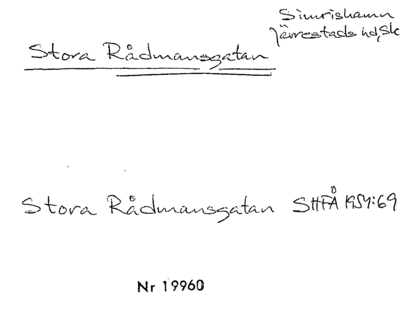 Simrishamn
Järrestads hd, Sk
Stora Rådmansgatan
Stora Rådmansgatan SHFÅ 1957:69
Nr 19960